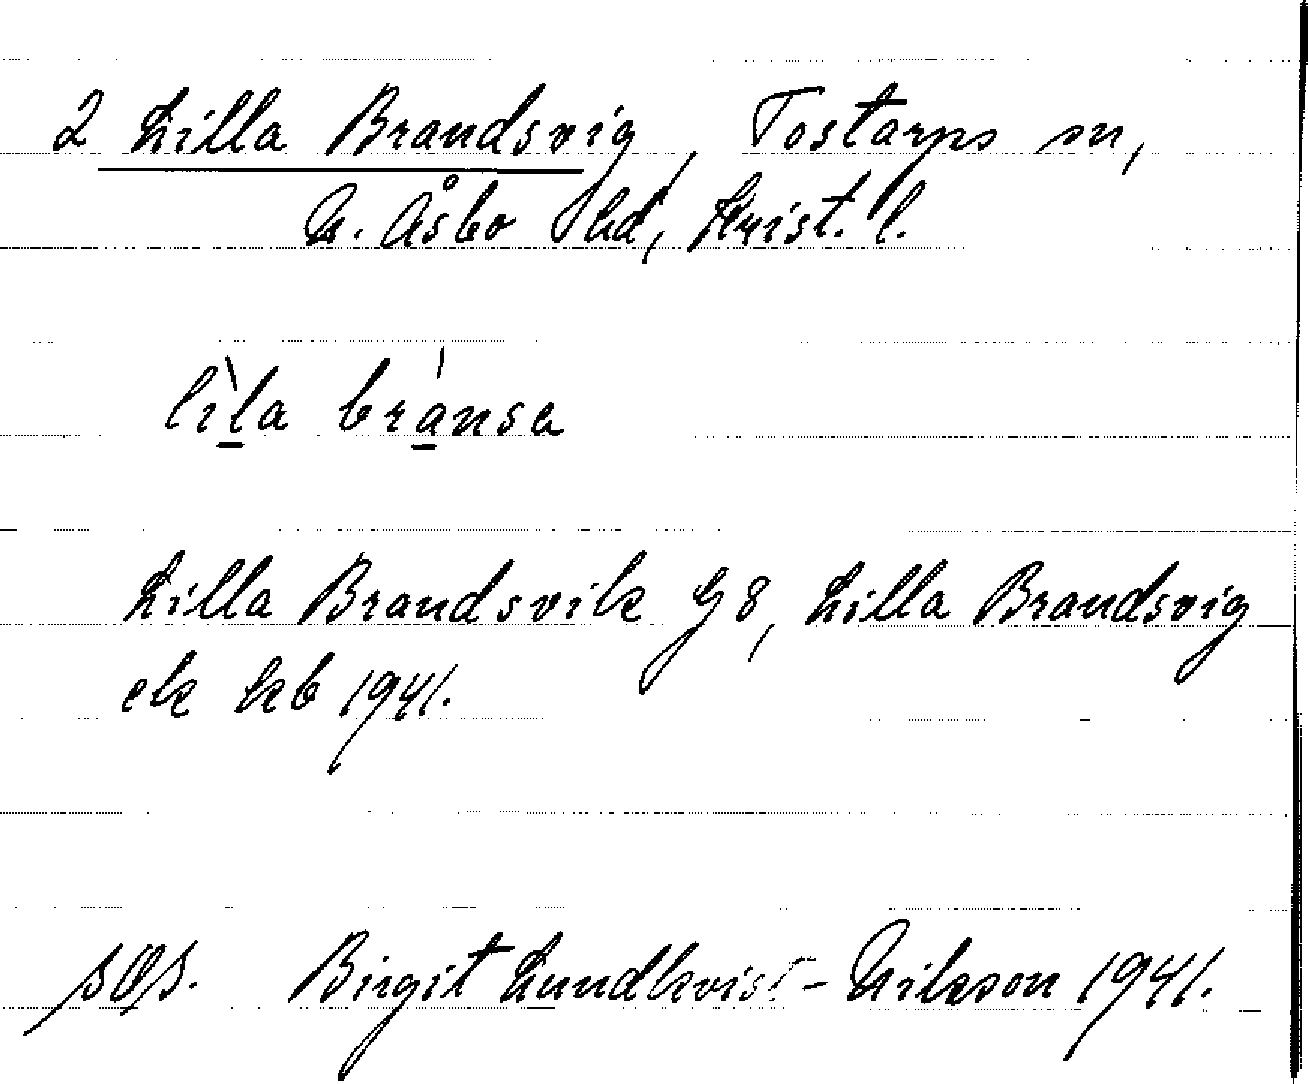 2 Lilla Brandsvig, Tostarps sn,
N. Åsbo hd, Krist. l.
lìla bránsa
Lilla Brandsvik G 8, Lilla Brandsvig
ek kb 1941.
Birgit Lundkvist-Nilsson 1941.